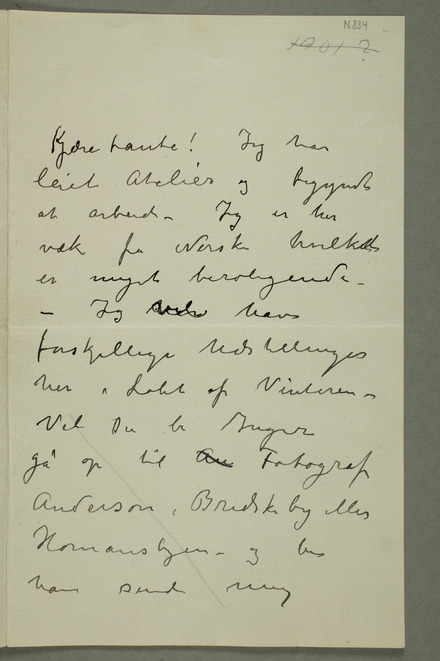 N834
1901?
Kjære tante! Jeg har
leiet Atelier og begyndt
at arbeide – Jeg er her
væk fra Norske hvilket
er meget beroligende –
– Jeg have
forskjellige Udstillinger
her i Løbet af Vinteren –
Vil Du be Inger
gå op til Fotograf
Anderson, Bredskeby eller
Homansbyen – og be
ham sende mig